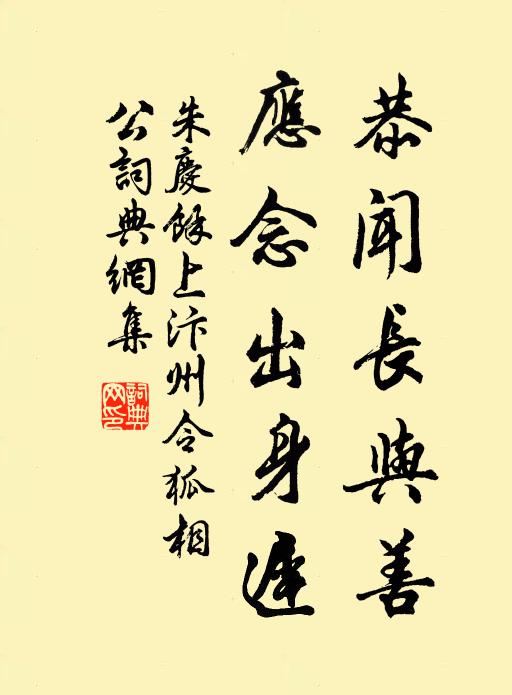 恭聞長與善
應念出身遲
朱慶餘上汴州令狐相
公詞典網集
詞典
网印